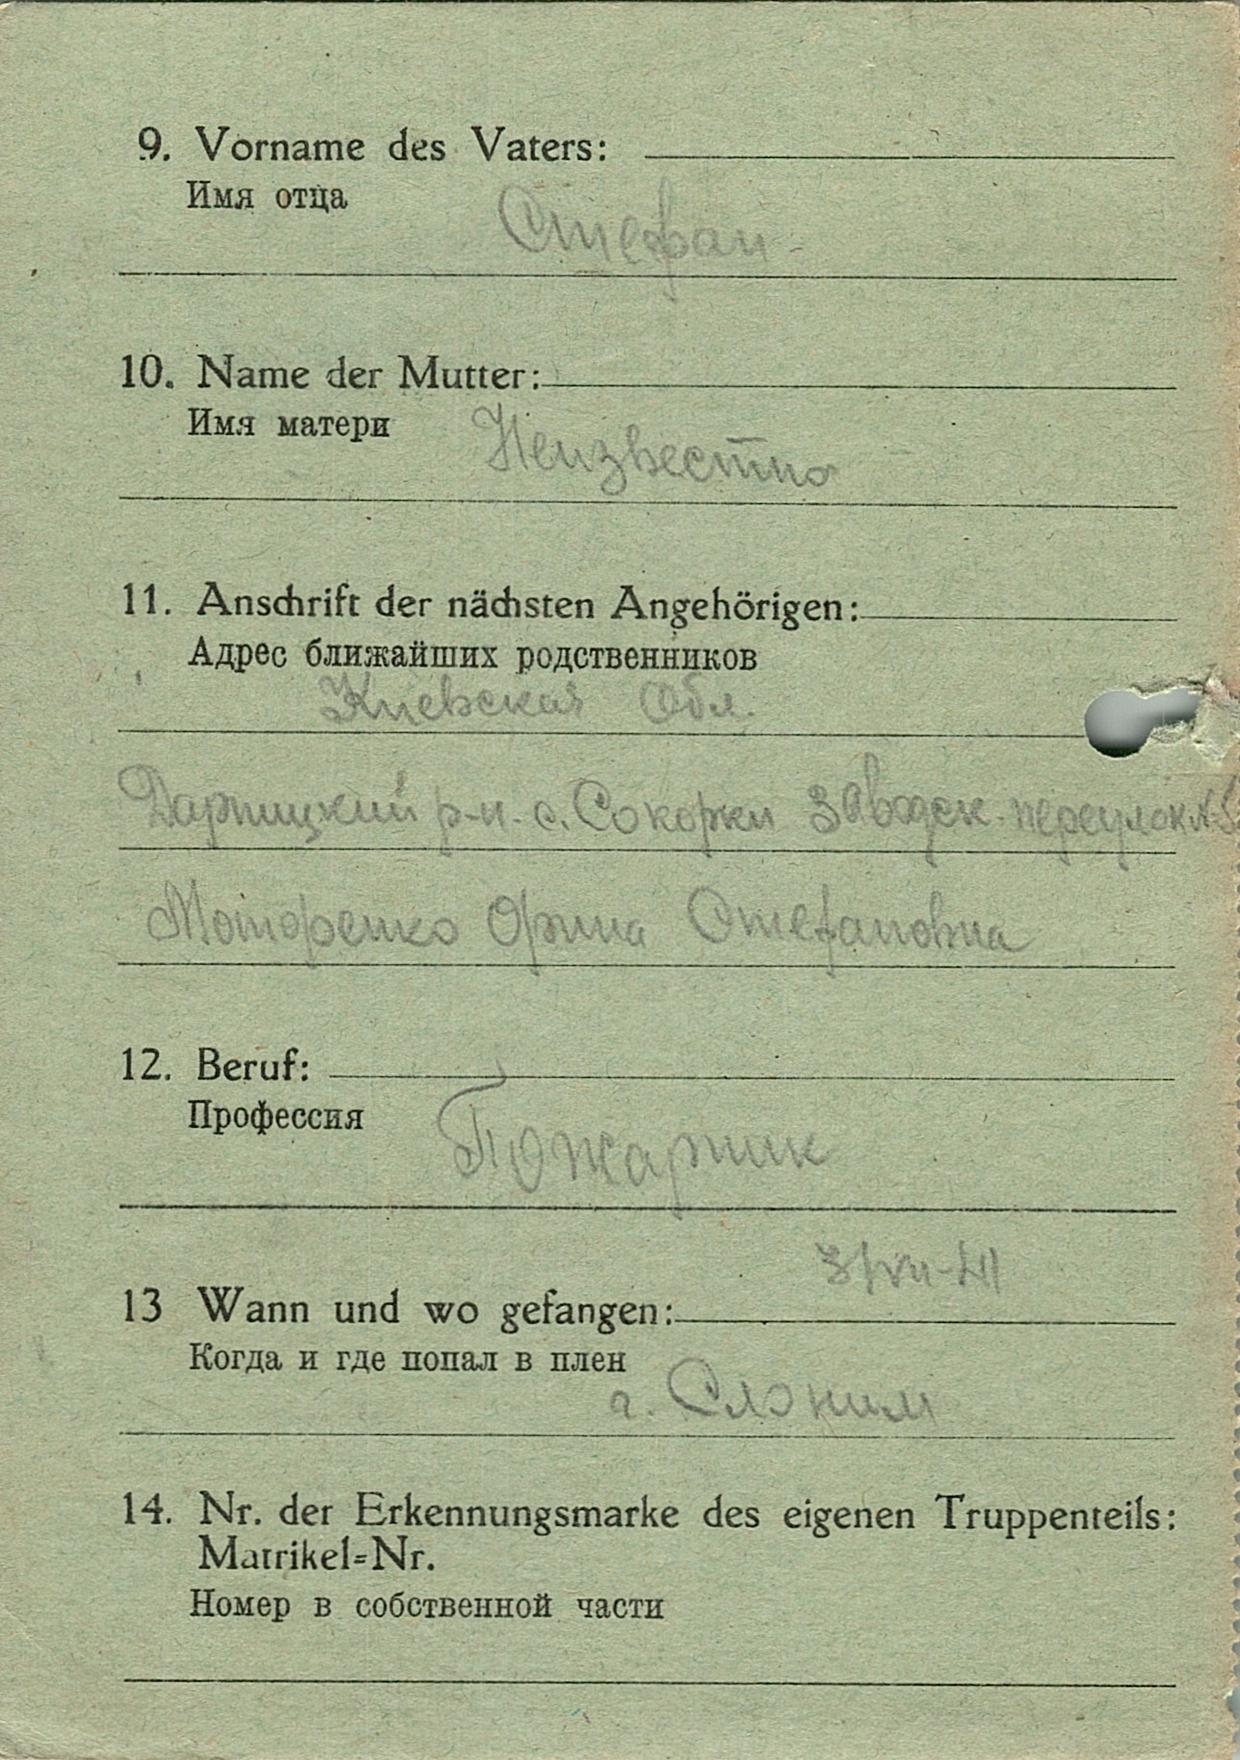 9. Vorname des Vaters:
Имя отца
Стефан
10. Name der Mutter:
Имя матери
Неизвестно
11. Anschrift der nächsten Angehörigen:
Адрес ближайших родственников
Киевская Обл.
Дарницкий р-н. с. Сокорки Заводск. переулок № 5
Моторенко Орина Стефановна
12. Beruf:
Профессия
Пожарник
13 Wann und wo gefangen:
Когда и где попал в плен
г. Слоним
14. Nr. der Erkennungsmarke des eigenen Truppenteils:
Matrikel=Nr.
Номер в собственной части